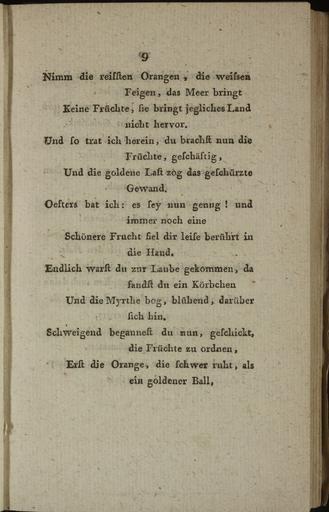 9
Nimm die reifſten Orangen, die weiſsen
Feigen, das Meer bringt
Keine Früchte, ſie bringt jegliches Land
nicht hervor.
Und ſo trat ich herein, du brachſt nun die
Früchte, geſchäftig,
Und die goldene Laſt zog das geſchürzte
Gewand.
Oefters bat ich: es ſey nun genug! und
immer noch eine
Schönere Frucht fiel dir leiſe berührt in
die Hand.
Endlich warſt du zur Laube gekommen, da
fandſt du ein Körbchen
Und die Myrthe bog, blühend, darüber
ſich hin.
Schweigend beganneſt du nun, geſchickt,
die Früchte zu ordnen,
Erſt die Orange, die ſchwer ruht, als
ein goldener Ball,